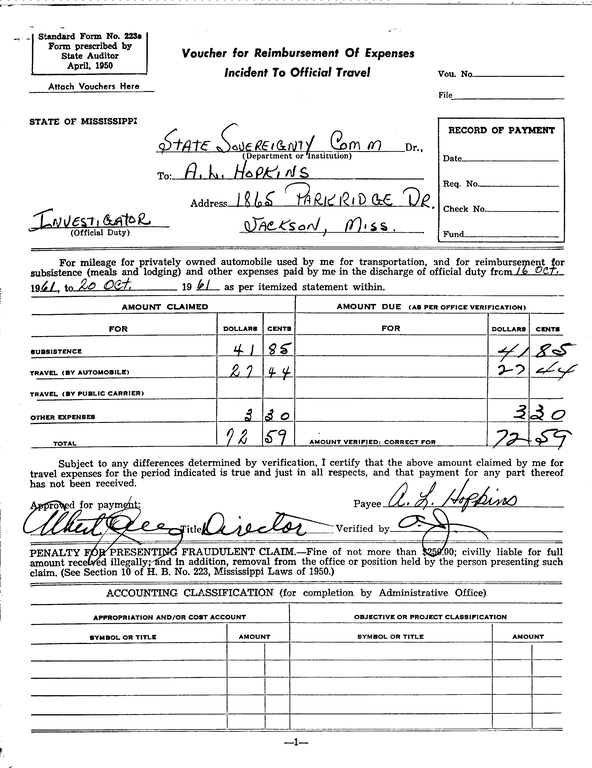 Standard Form No. 223a
Form prescribed by
State Auditor
April, 1950
Attach Vouchers Here
Voucher for Reimbursement Of Expenses
Incident To Official Travel
Vou. No.
File
STATE OF MISSISSIPPI
STATE SOVEREIGNTY COMM Dr.,
(Department or Institution)
To: A. L. HOPKINS
Address 1865 PARKRIDGE DR.
INVESTIGATOR JACKSON, MISS.
(Official Duty)
RECORD OF PAYMENT
Date
Req. No.
Check No.
Fund
For mileage for privately owned automobile used by me for transportation, and for reimbursement for
subsistence (meals and lodging) and other expenses paid by me in the discharge of official duty from 16 OCT.
1961, to 20 OCT. 1961 as per itemized statement within.
AMOUNT CLAIMED AMOUNT DUE (AS PER OFFICE VERIFICATION)
FOR DOLLARS CENTS FOR DOLLARS CENTS
SUBSISTENCE 41 85 41 85
TRAVEL (BY AUTOMOBILE) 27 44 27 44
TRAVEL (BY PUBLIC CARRIER)
OTHER EXPENSES 3 30 3 30
TOTAL 72 59 AMOUNT VERIFIED: CORRECT FOR 72 59
Subject to any differences determined by verification, I certify that the above amount claimed by me for
travel expenses for the period indicated is true and just in all respects, and that payment for any part thereof
has not been received.
Approved for payment: Payee A. L. Hopkins
Albert Title Director Verified by
PENALTY FOR PRESENTING FRAUDULENT CLAIM.—Fine of not more than $250.00; civilly liable for full
amount received illegally; and in addition, removal from the office or position held by the person presenting such
claim. (See Section 10 of H. B. No. 223, Mississippi Laws of 1950.)
ACCOUNTING CLASSIFICATION (for completion by Administrative Office)
APPROPRIATION AND/OR COST ACCOUNT OBJECTIVE OR PROJECT CLASSIFICATION
SYMBOL OR TITLE AMOUNT SYMBOL OR TITLE AMOUNT
—1—